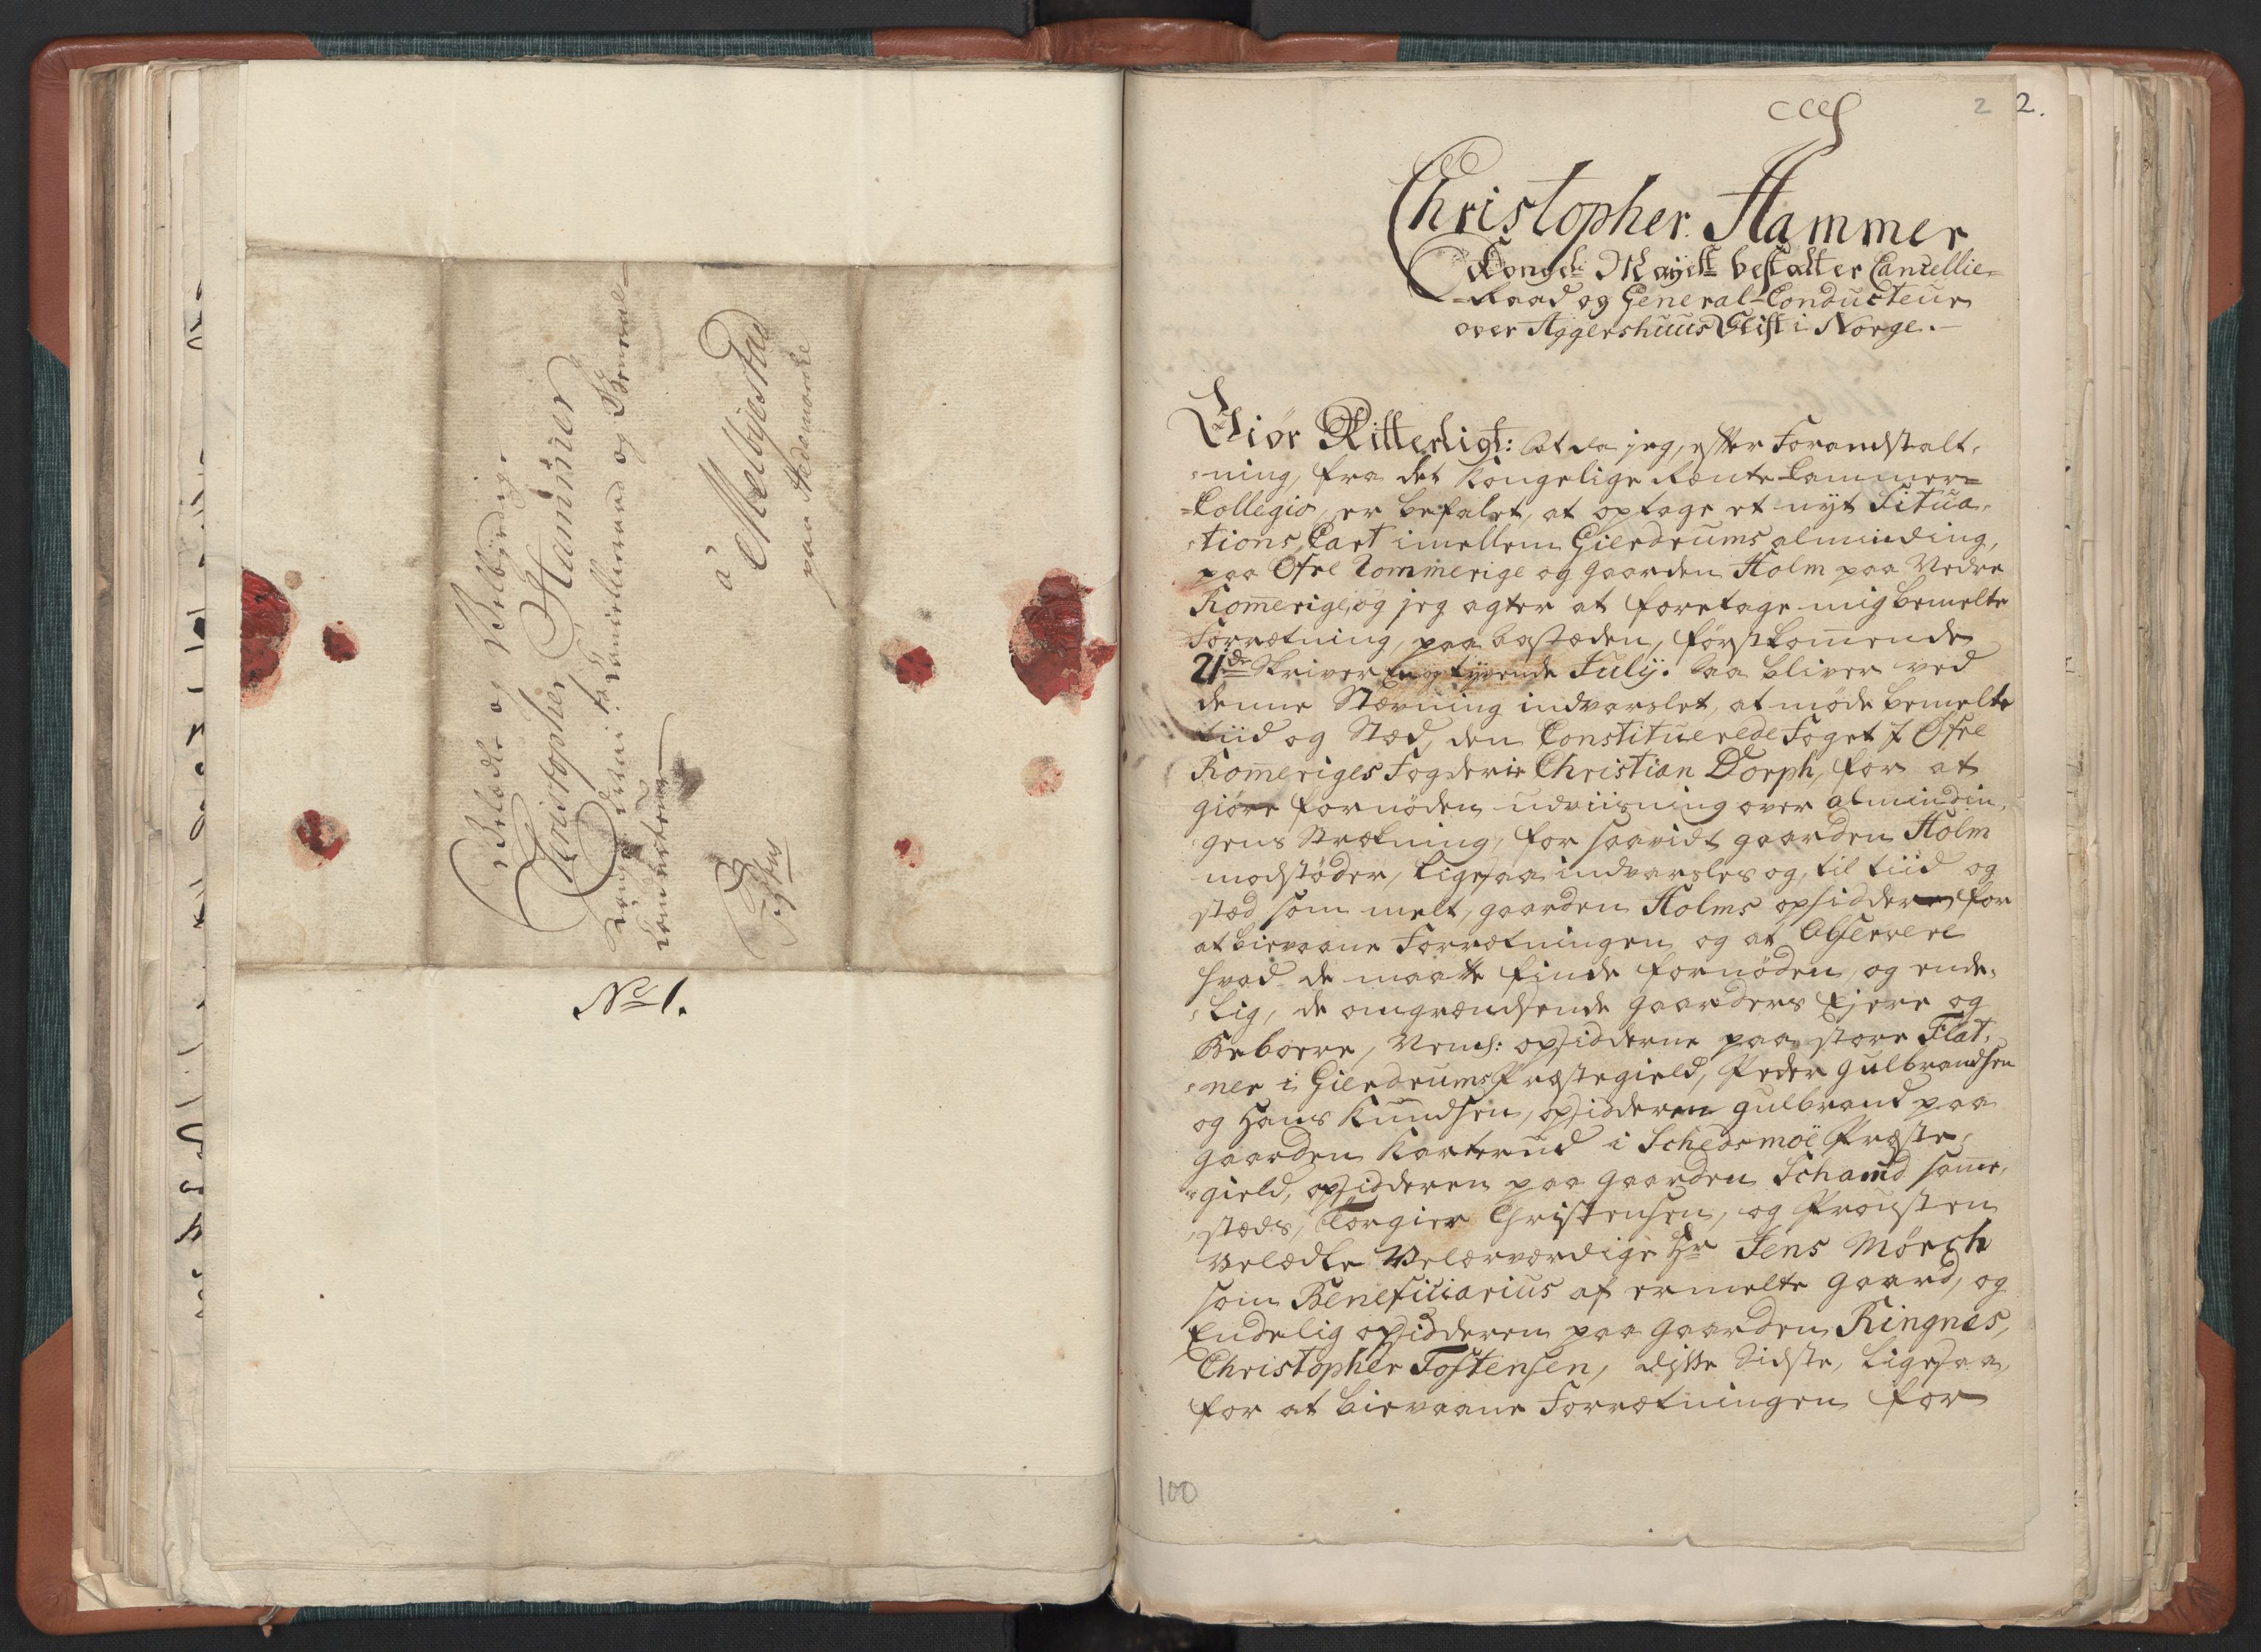 Velædle og Velbyrdig
Christopher Hammer
Kongl: Cancellieraad og General-
Conducteur
à Melbyestad
paa Hedemarke
No 1.
2 2.
Christopher Hammer
Kongel: Mayts bestalter Cancellie-
-Raad og General-Conducteur
over Aggershuus Stift i Norge.
Giör Vitterligt: at da jeg, efter Foranstalt-
-ning, fra det Kongelige Rente-Cammer-
-Collegio, er befalet, at optage et nyt Situa-
-tions Cart imellem Gierdrums alminding,
paa Öfre Rommerige og gaarden Holm paa Nedre
Romerige, og jeg agter at foretage mig bemelte
Forretning, paa aastæden, förstkomende
21de skriver Een og tyvende July: saa bliver ved
denne Stævning indvarslet, at möde bemelte
tiid og Stæd, den Constituerede Foget i Öfre
Romeriges Fogderie Christian Dorph, for at
giöre fornöden udviisning over almindin-
gens Strækning, for saavidt gaarden Holm
modstöder, Ligesaa indvarsles og, til tiid og
stæd som melt, gaarden Holms opsidder for
at bievaane Forretningen og at Observere
hvad de maatte finde fornöden, og ende-
-lig, de omgrændsende gaarders Ejere og
Beboere, Neml: opsidderne paa store Flat-
-ner i Gierdrums Præstegield, Peder Gulbrandsen
og Hans Knudsen, opsidderen Gulbrand paa
gaarden Karterud i Schedsmoe Præste-
-gield, opsidderen paa gaarden Schamd same-
stæds, Torgier Christensen, og Provsten
Velædle Velærværdige Hr Jens Mörch
som Beneficiarius af ermelte gaard, og
Endelig opsidderen paa gaarden Ringnes,
Christopher Tostensen, disse Sidste, Ligesaa,
for at bievaane Forretningen for
100